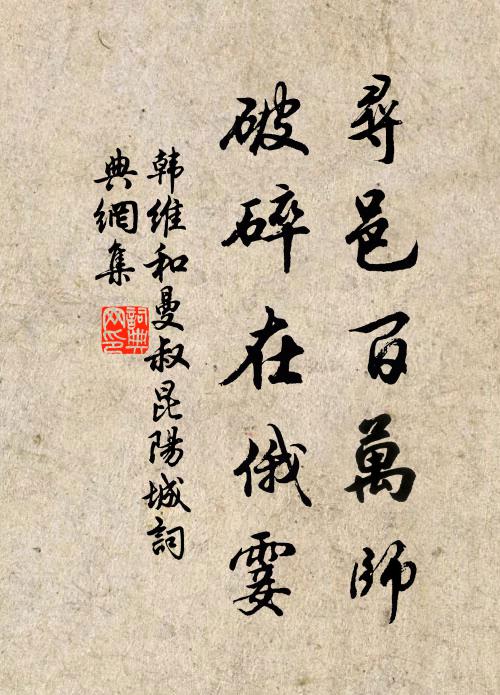 尋邑百萬師
破碎在俄霎
韓維和曼叔昆陽城詞
典網集
詞典
网印